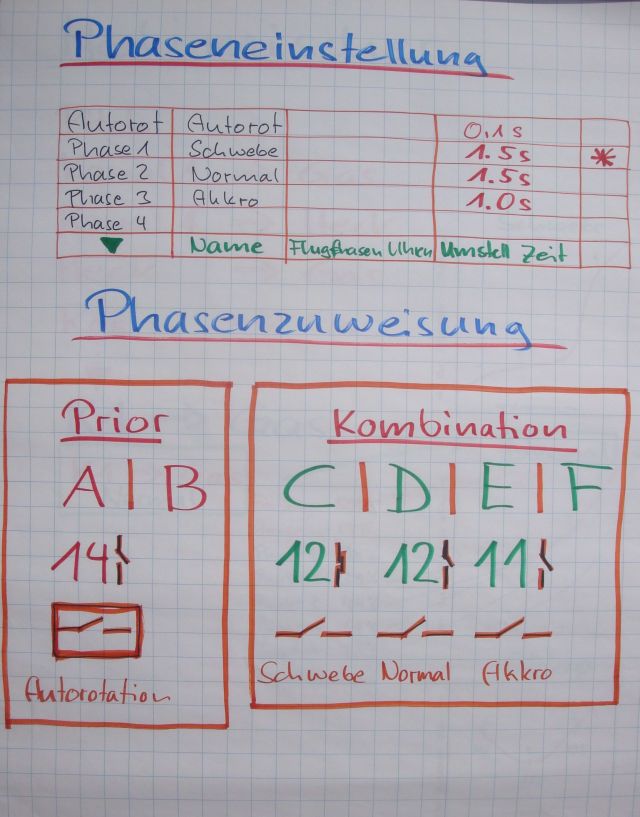 Phaseneinstellung
Autorot Autorot 0,1s
Phase 1 Schwebe 1.5s *
Phase 2 Normal 1.5s
Phase 3 Akkro 1.0s
Phase 4
Name Flugphasen Uhren Umstell Zeit
Phasenzuweisung
Prior
A | B
14
Autorotation
Kombination
C | D | E | F
12 12 11
Schwebe Normal Akkro